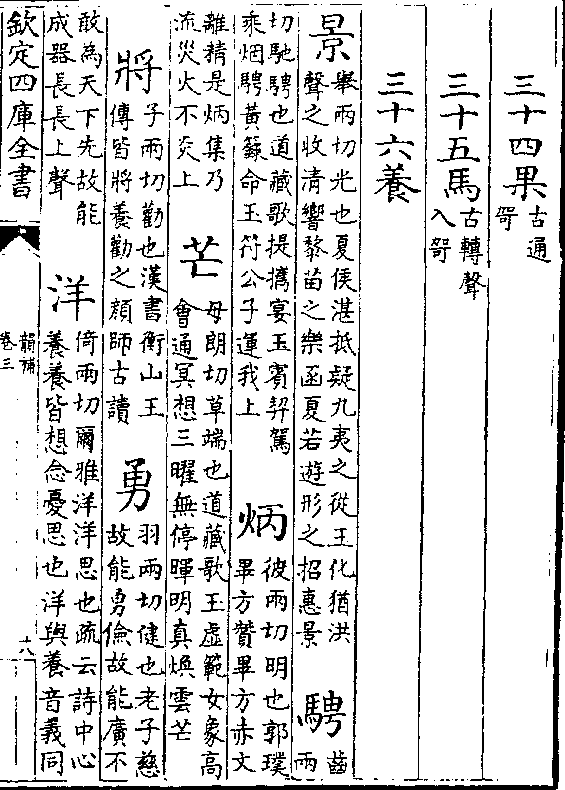 三十四果古通哿
三十五馬古轉聲入哿
三十六養
景舉兩切光也夏侯湛抵疑九夷之從王化猶洪聲之收清響黎苗之樂函夏若遊形之招惠景 騁齒兩
切馳騁也道藏歌提攜宴玉賓契駕乘烟騁黃籙命玉符公子運我上 炳彼兩切明也郭璞畢方贊畢方赤文
離精是炳集乃流災火不炎上 芒母朗切草端也道藏歌玉虛範女象高會通冥想三曜無停暉明真煥雲芒
將子兩切勸也漢書衡山王傳皆將養勸之顏師古讀 勇羽兩切健也老子慈故能勇儉故能廣不
敢為天下先故能成器長長上聲 洋倚兩切爾雅洋洋思也疏云詩中心養養皆想念憂思也洋與養音義同
欽定四庫全書
韻補
卷三
十六